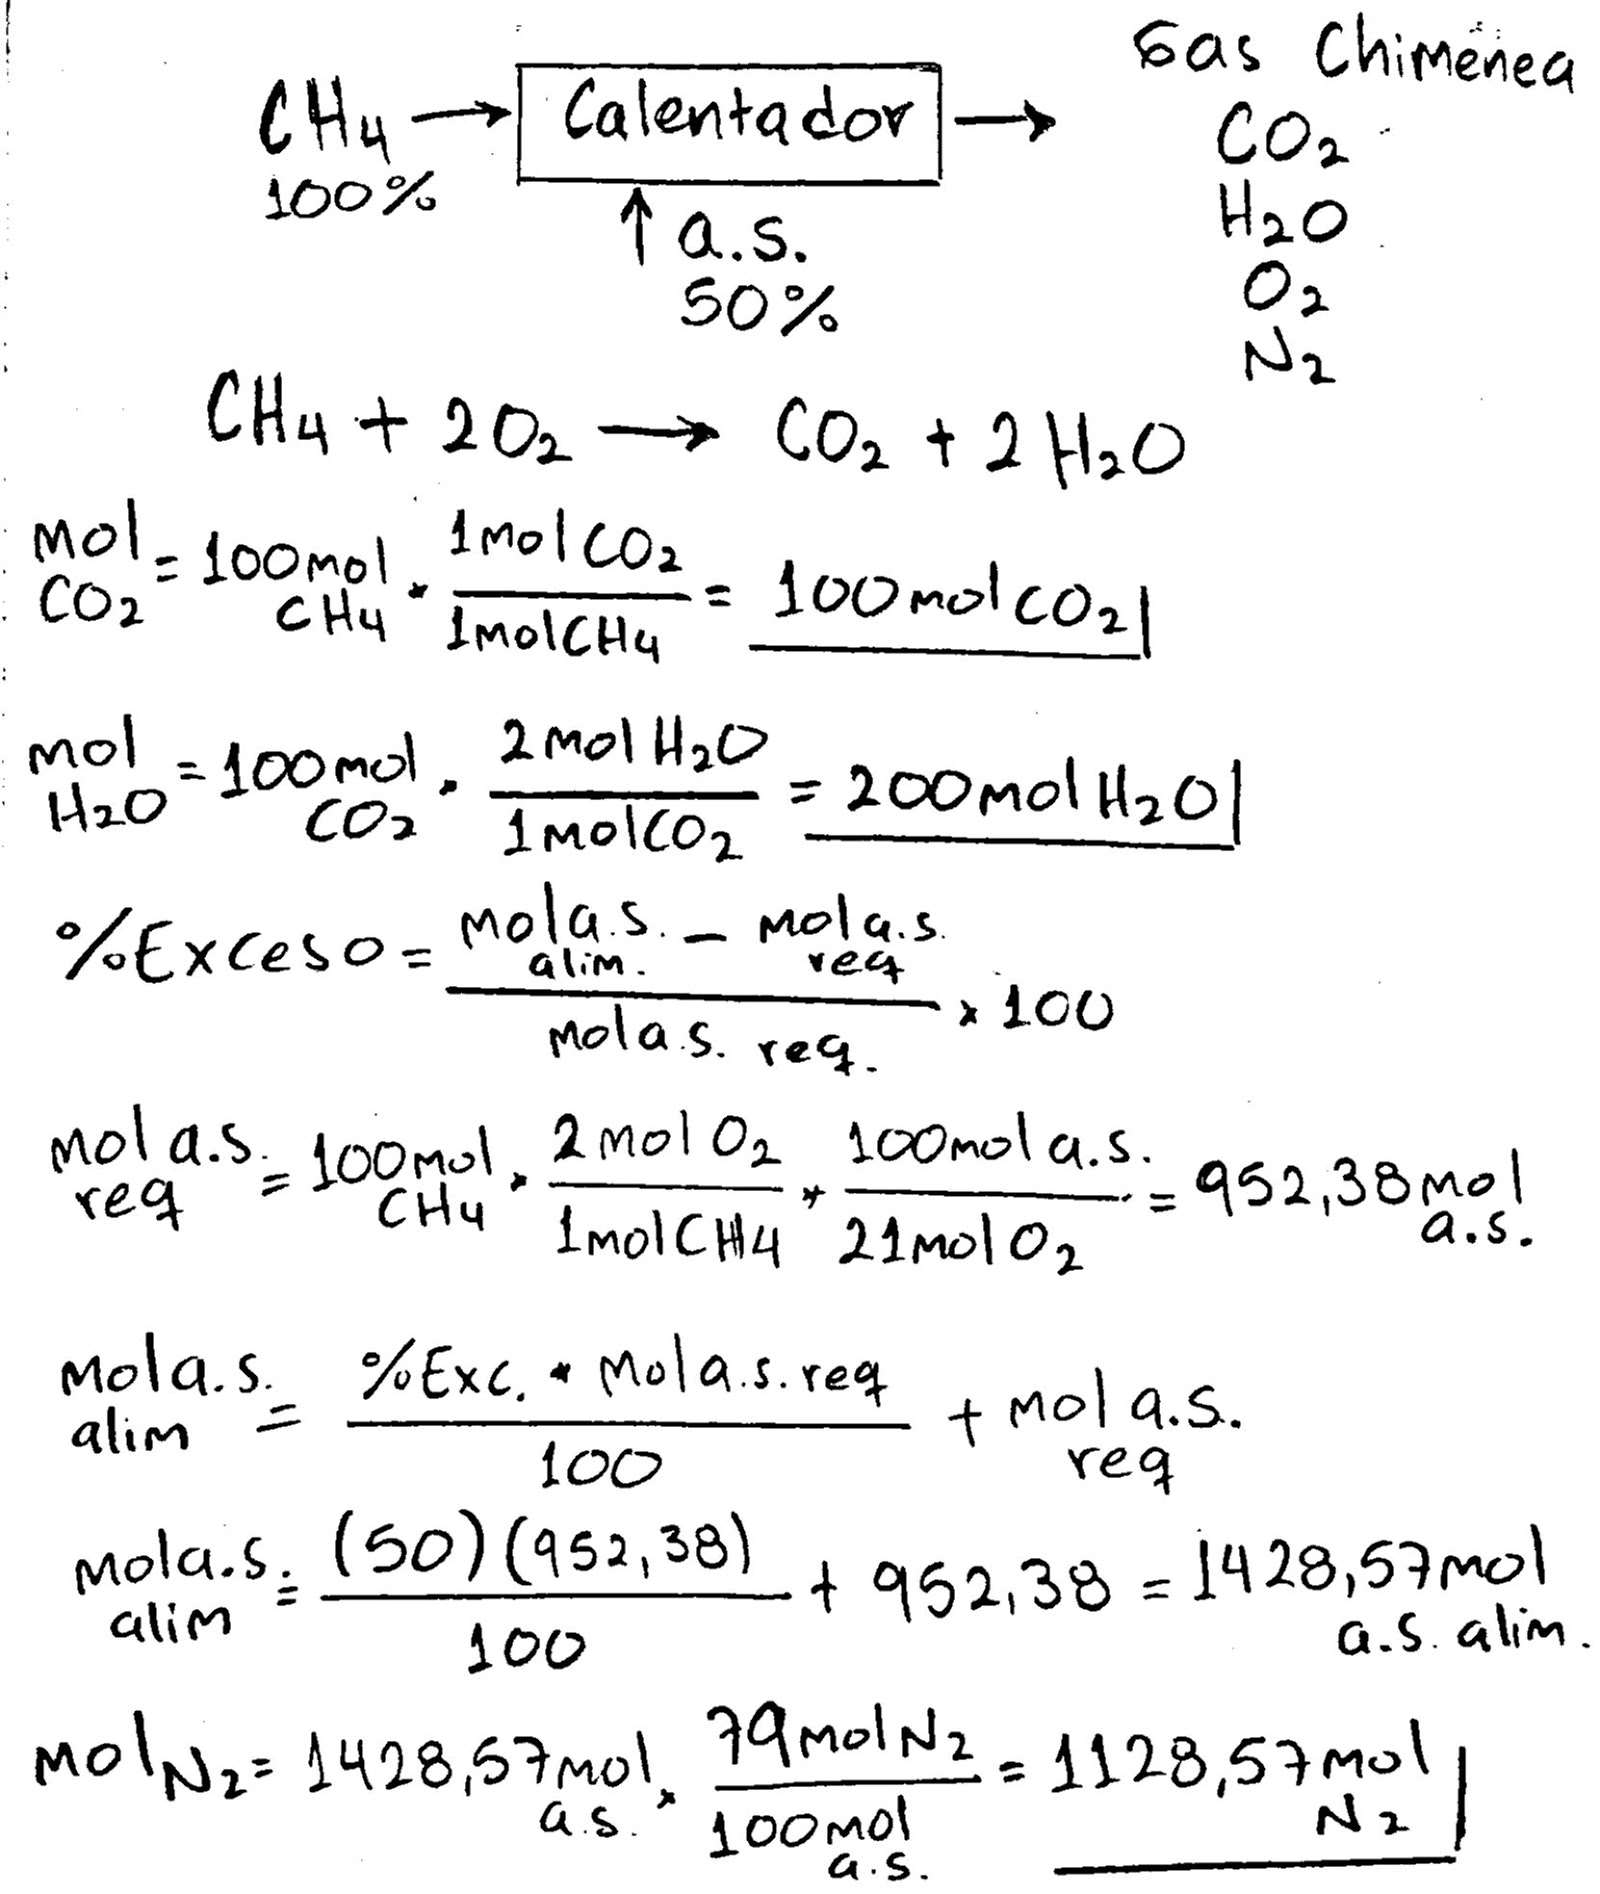 Gas Chimenea
CH4 → Calentador →
100%
↑ a.s.
50%
CO2
H2O
O2
N2
CH4 + 2O2 → CO2 + 2H2O
mol CO2 = 100mol CH4 * 1molCO2 / 1molCH4 = 100molCO2
mol H2O = 100mol CO2 * 2molH2O / 1molCO2 = 200molH2O
%Exceso = mola.s. alim. - mola.s. req / mola.s. req. * 100
mol a.s. req = 100mol CH4 * 2molO2 / 1molCH4 * 100mol a.s. / 21molO2 = 952,38mol a.s.
mola.s. alim = %Exc. * mola.s. req / 100 + mol a.s. req
mola.s. alim = (50)(952,38) / 100 + 952,38 = 1428,57mol a.s. alim.
molN2 = 1428,57mol a.s. * 79molN2 / 100mol a.s. = 1128,57mol N2